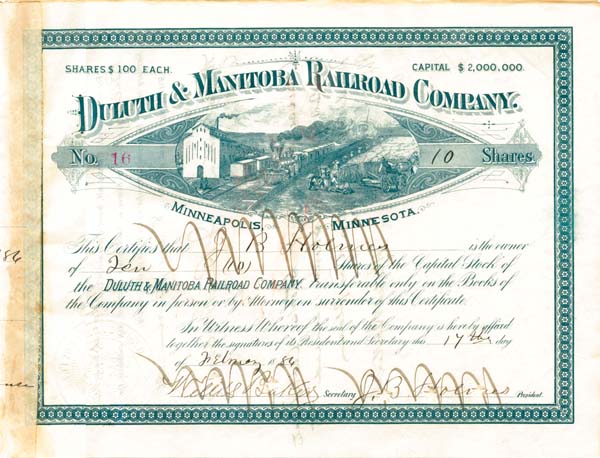 SHARES $100 EACH. CAPITAL $2,000,000.
DULUTH & MANITOBA RAILROAD COMPANY.
No. 16 10 Shares.
MINNEAPOLIS, MINNESOTA.
This Certifies that J B Holmes is the owner
of Ten (10) Shares of the Capital Stock of
the DULUTH & MANITOBA RAILROAD COMPANY. transferable only on the Books of
the Company in person or by Attorney on surrender of this Certificate.
In Witness Whereof the seal of the Company is hereby affixed
together the signatures of its President and Secretary this 17th day
of 1886
Secretary J. B Holmes President.
86